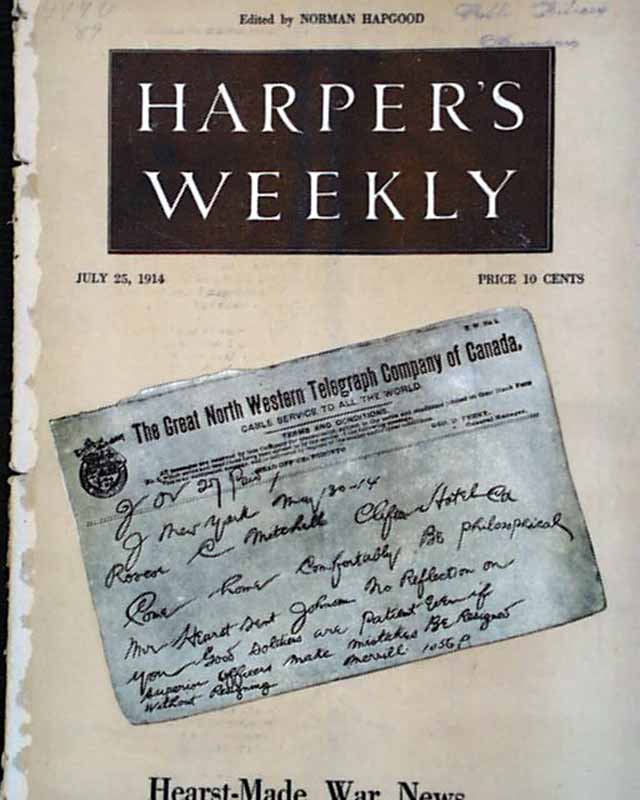 Edited by NORMAN HAPGOOD
HARPER'S
WEEKLY
JULY 25, 1914
PRICE 10 CENTS
The Great North Western Telegraph Company of Canada.
CABLE SERVICE TO ALL THE WORLD.
TERMS AND CONDITIONS.
HEAD OFFICE, TORONTO
27 Paid
New York May 30-14
Roscoe C Mitchell Clifton Hotel Ca
Come home Comfortably Be philosophical
Mr Hearst sent Johnson No Reflection on
you Good Soldiers are patient Even if
superior officers make mistakes BE Resigned
Without Resigning
Merrill 1056P
Hearst-Made War News